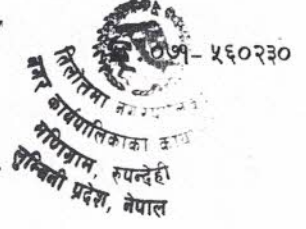 ०७१- ५६०२३०
तिलोत्तमा नगरपालिका
नगर कार्यपालिकाको कार्या
मणिग्राम, रुपन्देही
लुम्बिनी प्रदेश, नेपाल